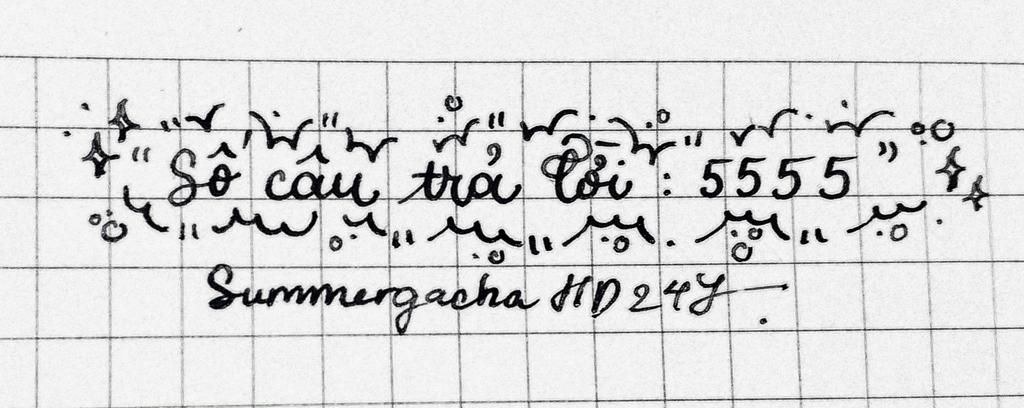 "Số câu trả lời : 5555"
Summergacha HD24Y